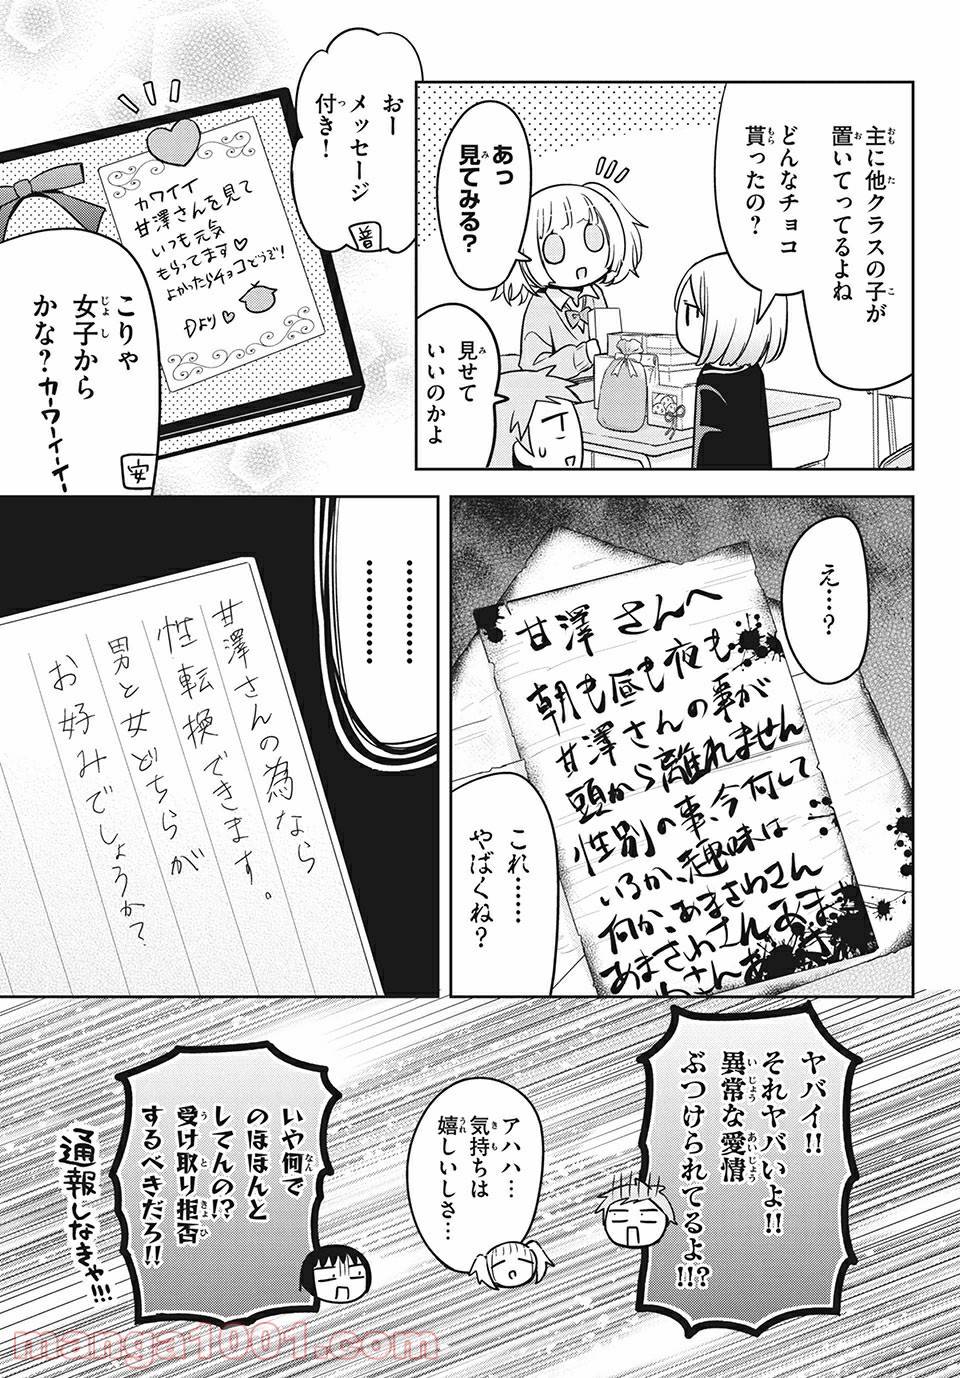 主に他クラスの子が
置いてってるよね
どんなチョコ
貰ったの?
あっ
見てみる?
見せて
いいのかよ
おー
メッセージ
付き!
普
カワイイ
甘澤さんを見て
いつも元気
もらってます♡
よかったらチョコどうぞ!
Dより♡
こりゃ
女子から
かな?カーワーイーイー
安
え…?
甘澤さんへ
朝も昼も夜も
甘澤さんの事が
頭から離れません
性別の事、今何して
いるか、趣味は
何か、あまさわさん
あまさわさんあまさ
わさんあ
これ……
やばくね?
………………
甘澤さんの為なら
性転換できます。
男と女どちらが
お好みでしょうか?
ヤバイ!!
それヤバいよ!!
異常な愛情
ぶつけられてるよ!!?
アハハ…
気持ちは
嬉しいしさ…
いや何で
のほほんと
してんの!?
受け取り拒否
するべきだろ!!
通報しなきゃ!!!
manga1001.com